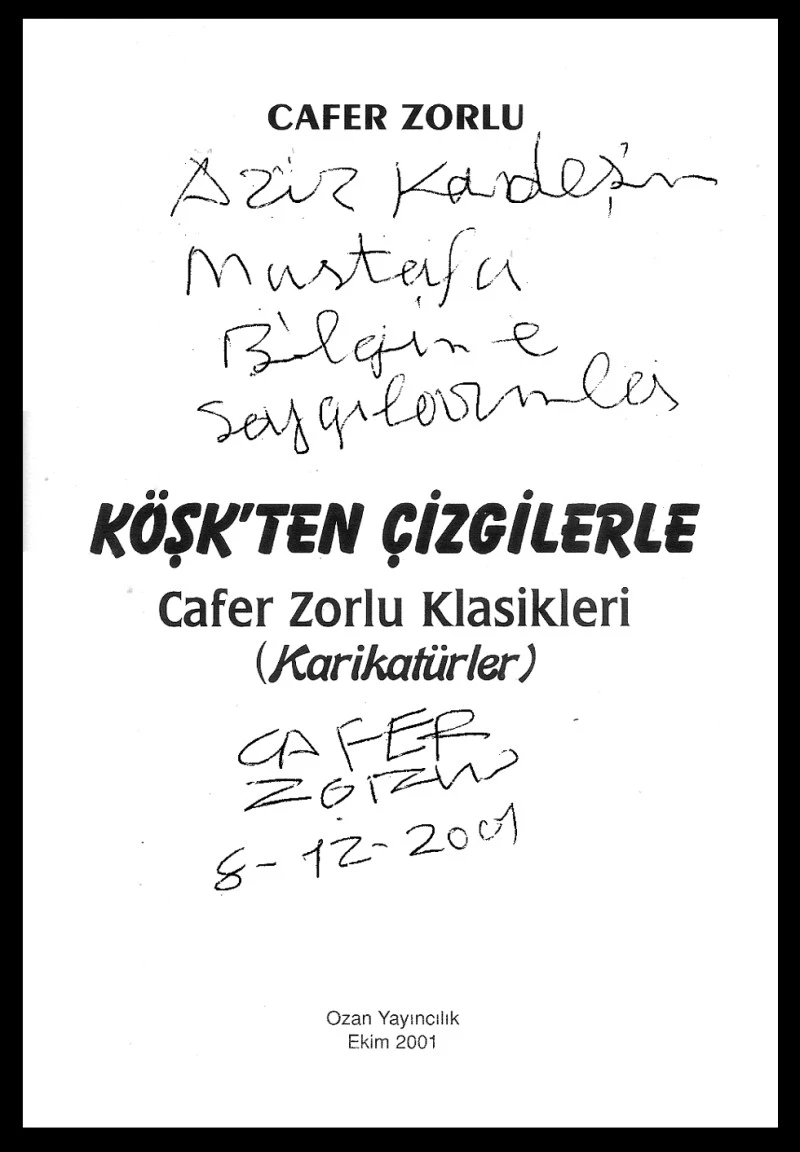 CAFER ZORLU
Aziz Kardeşim
Mustafa
Bilgin e
Saygılarımla
KÖŞK'TEN ÇİZGİLERLE
Cafer Zorlu Klasikleri
(Karikatürler)
CAFER
ZORLU
8-12-2001
Ozan Yayıncılık
Ekim 2001